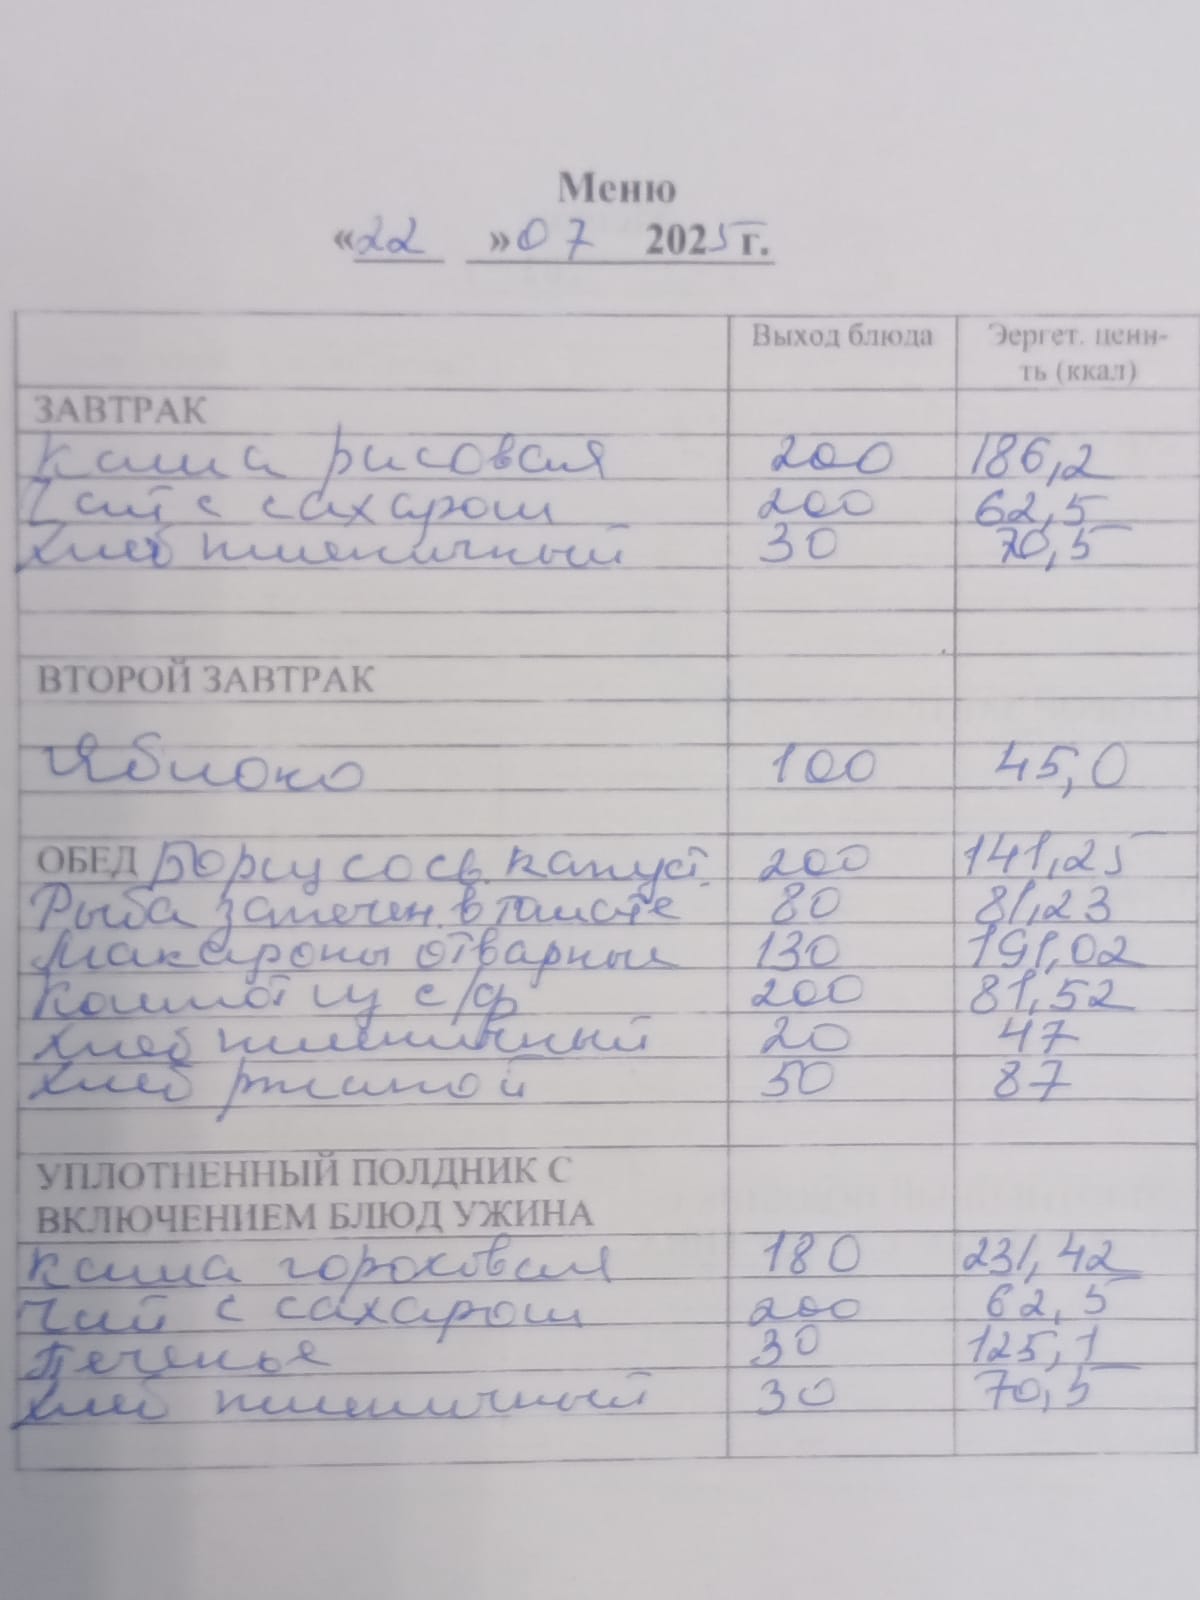 Меню
«22 »07 2025 г.
Выход блюда Эергет. ценн-
ть (ккал)
ЗАВТРАК
Каша рисовая 200 186,2
Чай с сахаром 200 62,5
Хлеб пшеничный 30 70,5
ВТОРОЙ ЗАВТРАК
Яблоко 100 45,0
ОБЕД Борщ со св. капуст. 200 141,25
Рыба запечен. в томате 80 81,23
Макароны отварные 130 191,02
Компот из с/ф 200 81,52
Хлеб пшеничный 20 47
Хлеб ржаной 50 87
УПЛОТНЕННЫЙ ПОЛДНИК С
ВКЛЮЧЕНИЕМ БЛЮД УЖИНА
Каша гороховая 180 231,42
Чай с сахаром 200 62,5
Печенье 30 125,1
Хлеб пшеничный 30 70,5